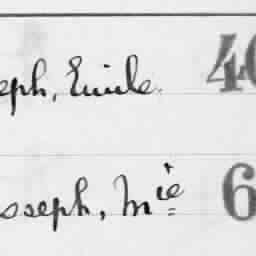 eph, Emile. 40
oseph, Mie 6